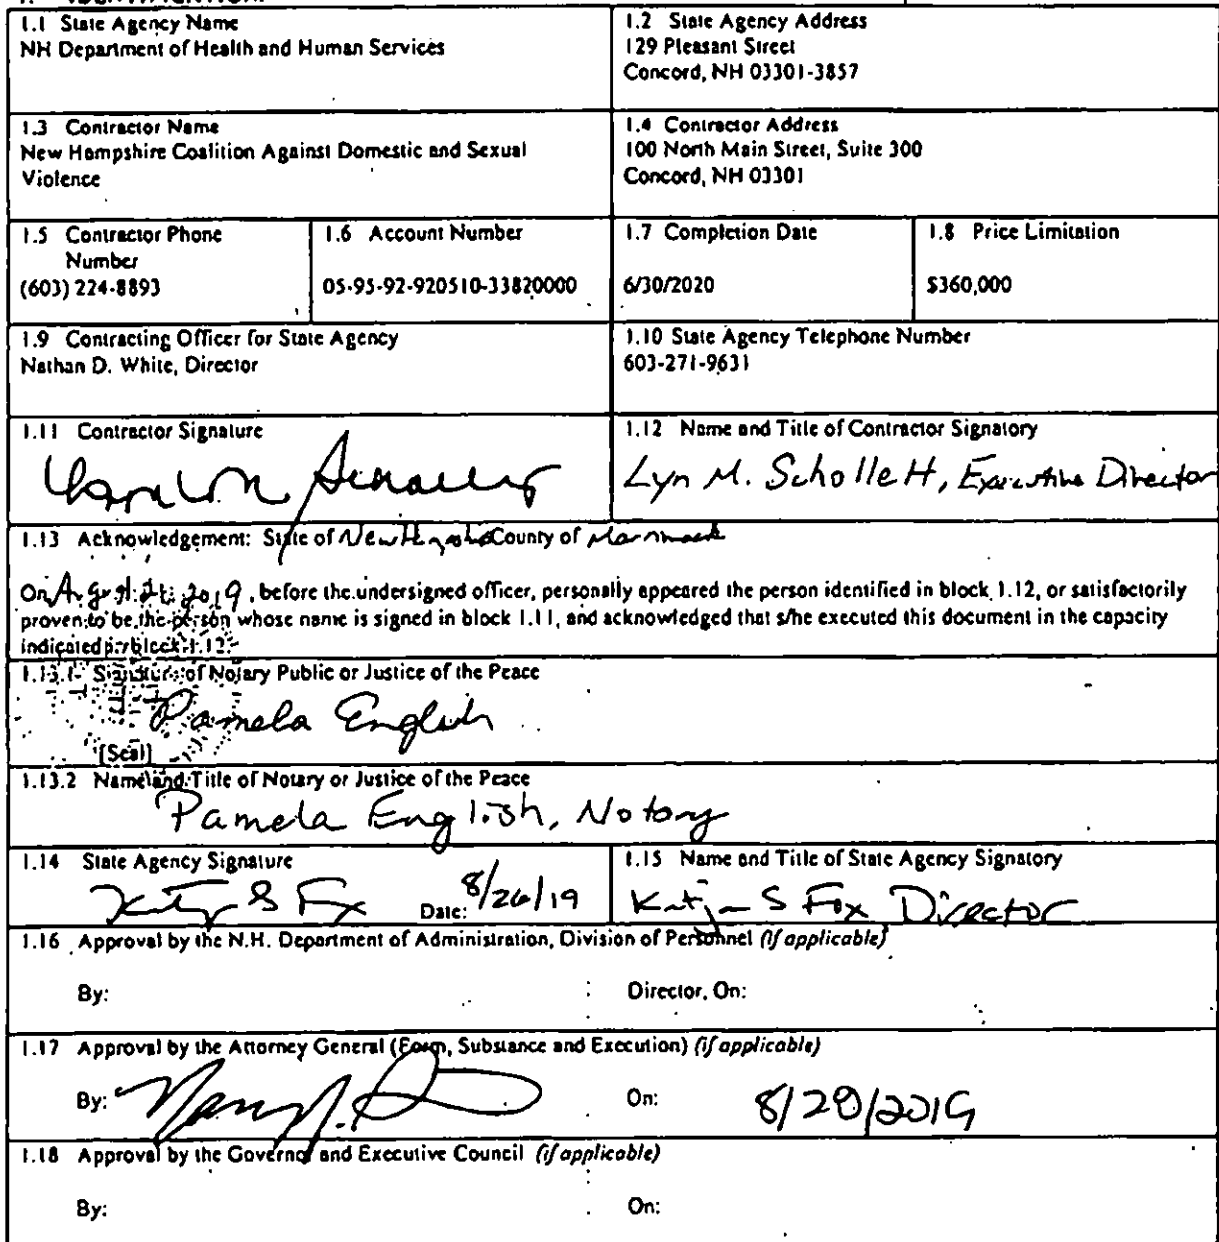 1.1 State Agency Name
NH Department of Health and Human Services
1.2 State Agency Address
129 Pleasant Street
Concord, NH 03301-3857
1.3 Contractor Name
New Hampshire Coalition Against Domestic and Sexual
Violence
1.4 Contractor Address
100 North Main Street, Suite 300
Concord, NH 03301
1.5 Contractor Phone
Number
(603) 224-8893
1.6 Account Number
05-95-92-920510-33820000
1.7 Completion Date
6/30/2020
1.8 Price Limitation
$360,000
1.9 Contracting Officer for State Agency
Nathan D. White, Director
1.10 State Agency Telephone Number
603-271-9631
1.11 Contractor Signature
1.12 Name and Title of Contractor Signatory
Lyn M. Schollett, Executive Director
1.13 Acknowledgement: State of New Hampshire County of Merrimack
On August 2019, before the undersigned officer, personally appeared the person identified in block 1.12, or satisfactorily
proven to be the person whose name is signed in block 1.11, and acknowledged that s/he executed this document in the capacity
indicated in block 1.12.
1.13.1 Signature of Notary Public or Justice of the Peace
Pamela English
[Seal]
1.13.2 Name and Title of Notary or Justice of the Peace
Pamela English, Notary
1.14 State Agency Signature
Date: 8/26/19
1.15 Name and Title of State Agency Signatory
Katja S Fox Director
1.16 Approval by the N.H. Department of Administration, Division of Personnel (if applicable)
By:
Director, On:
1.17 Approval by the Attorney General (Form, Substance and Execution) (if applicable)
By:
On: 8/28/2019
1.18 Approval by the Governor and Executive Council (if applicable)
By:
On: